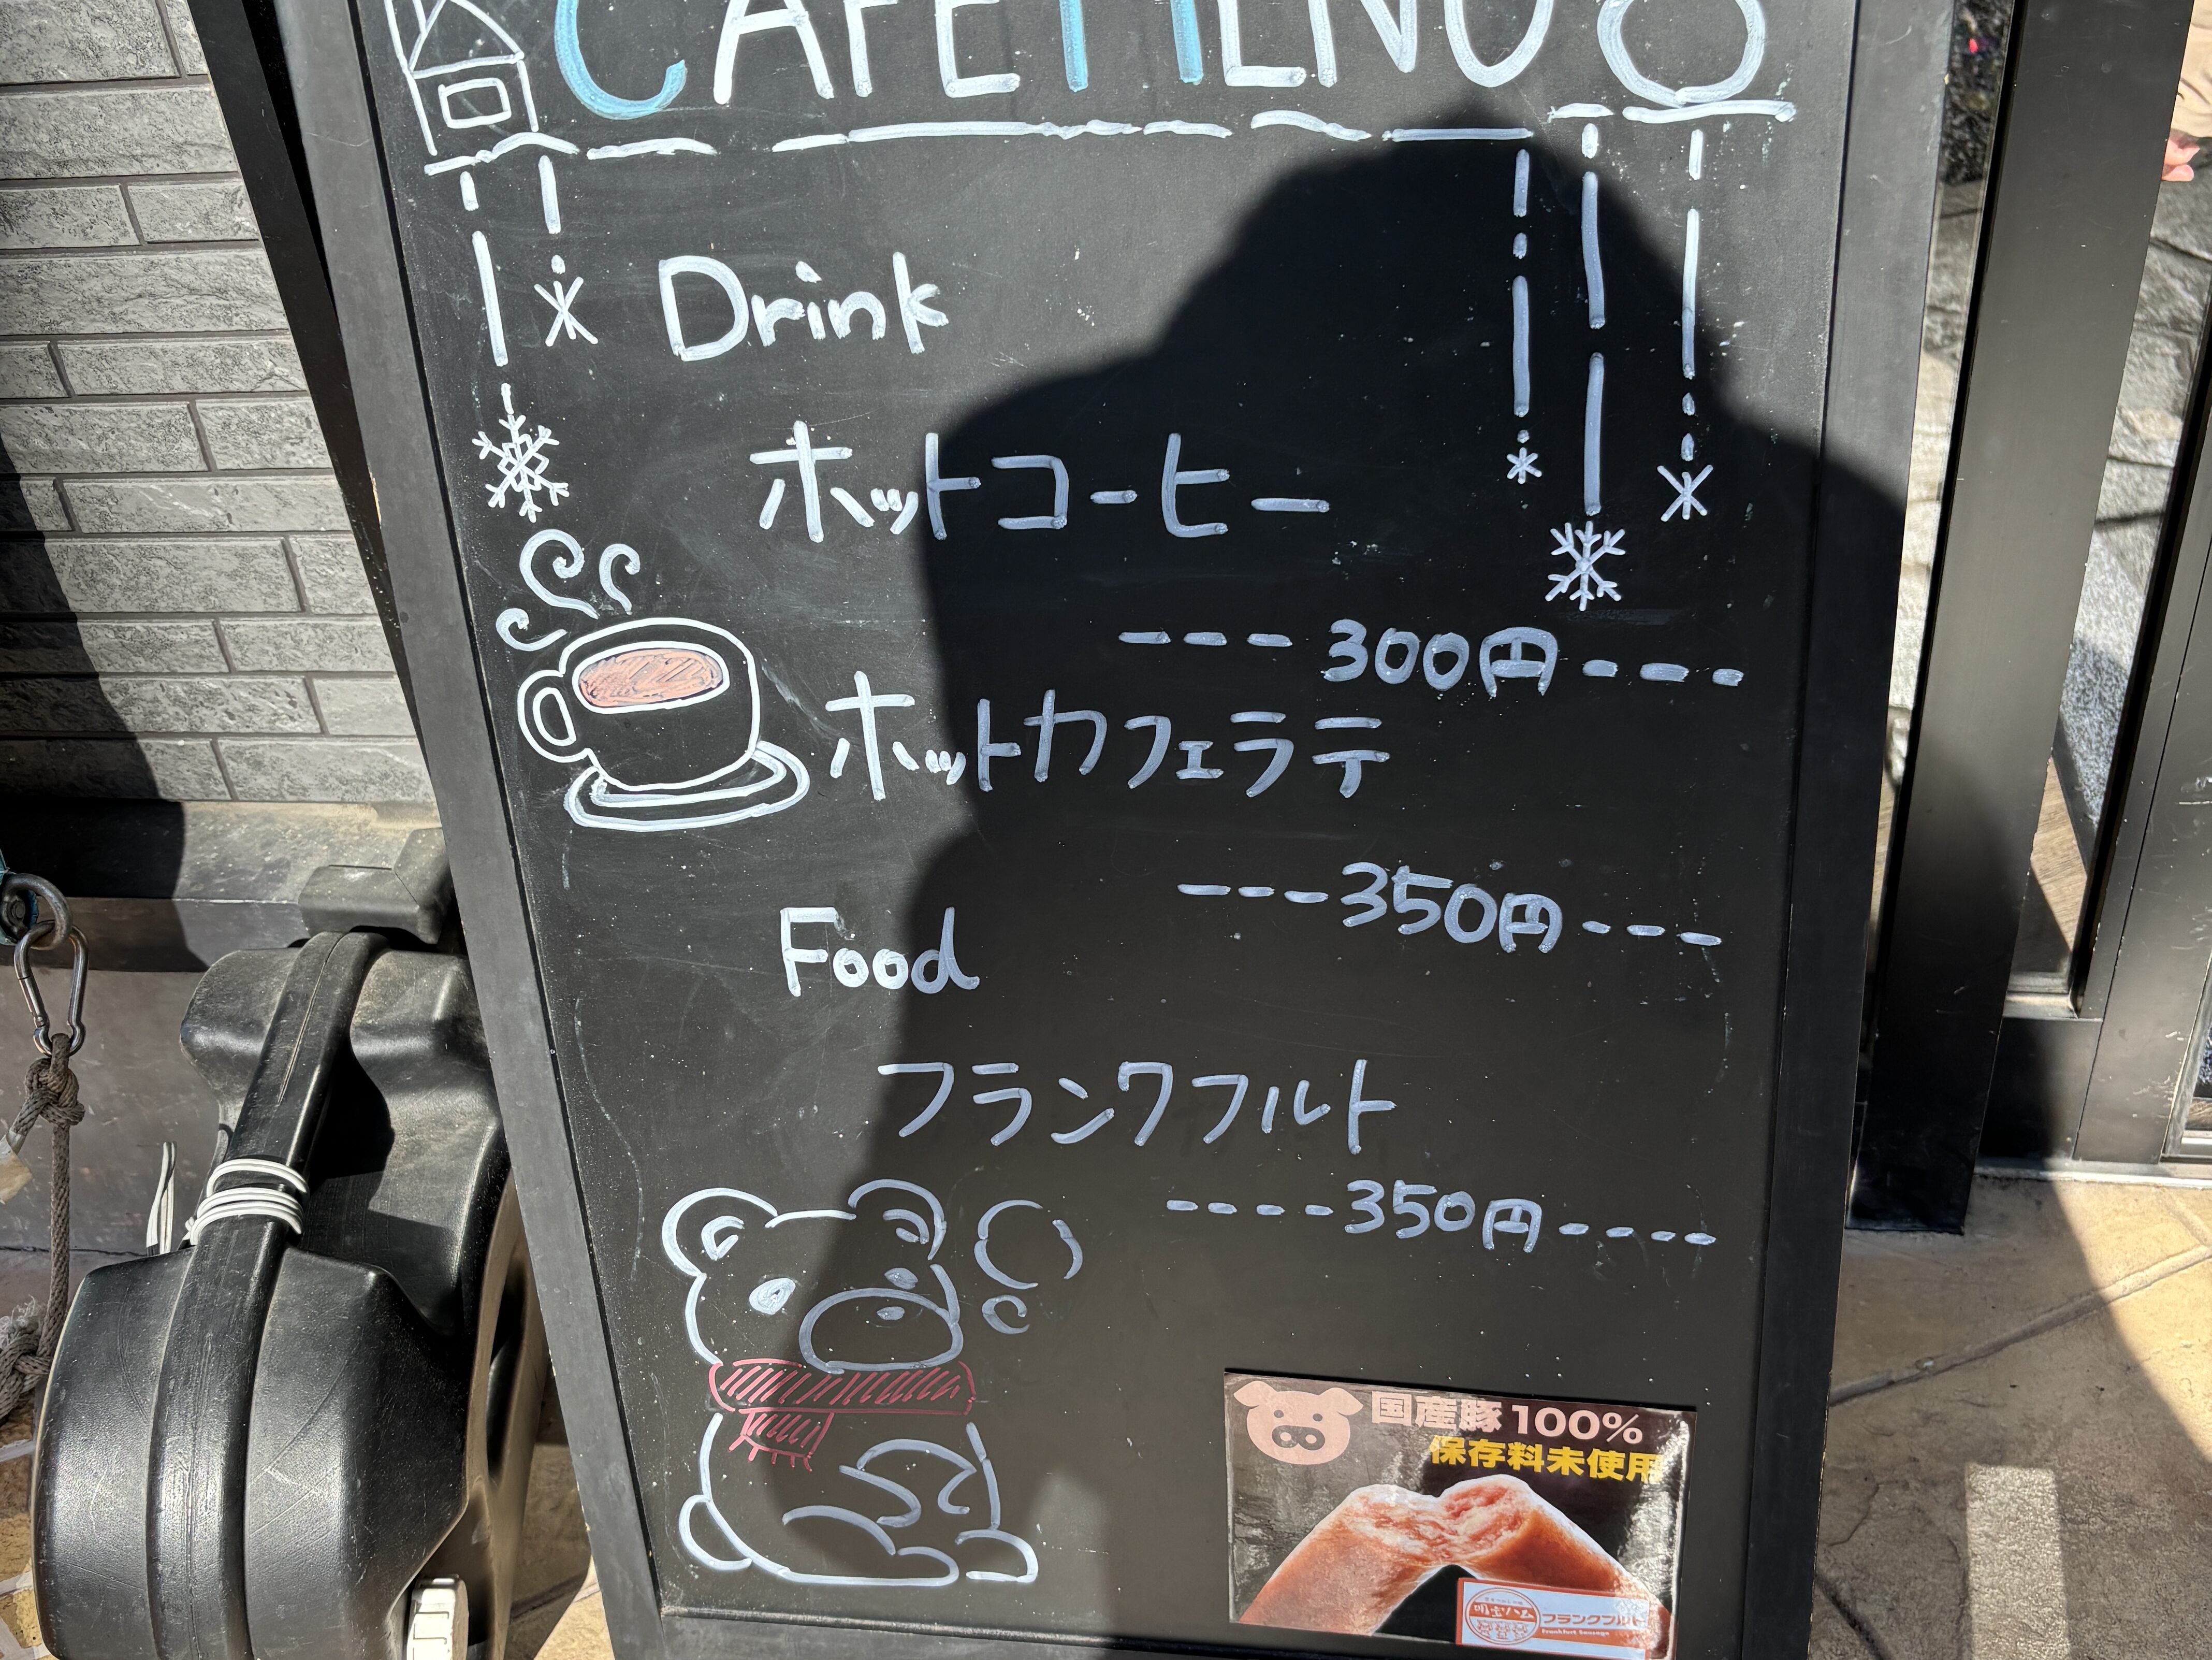 CAFE MENU
Drink
ホットコーヒー
---300円---
ホットカフェラテ
---350円---
Food
フランクフルト
----350円----
国産豚100%
保存料未使用
明宝ハム
フランクフルト
Frankfurt Sausage